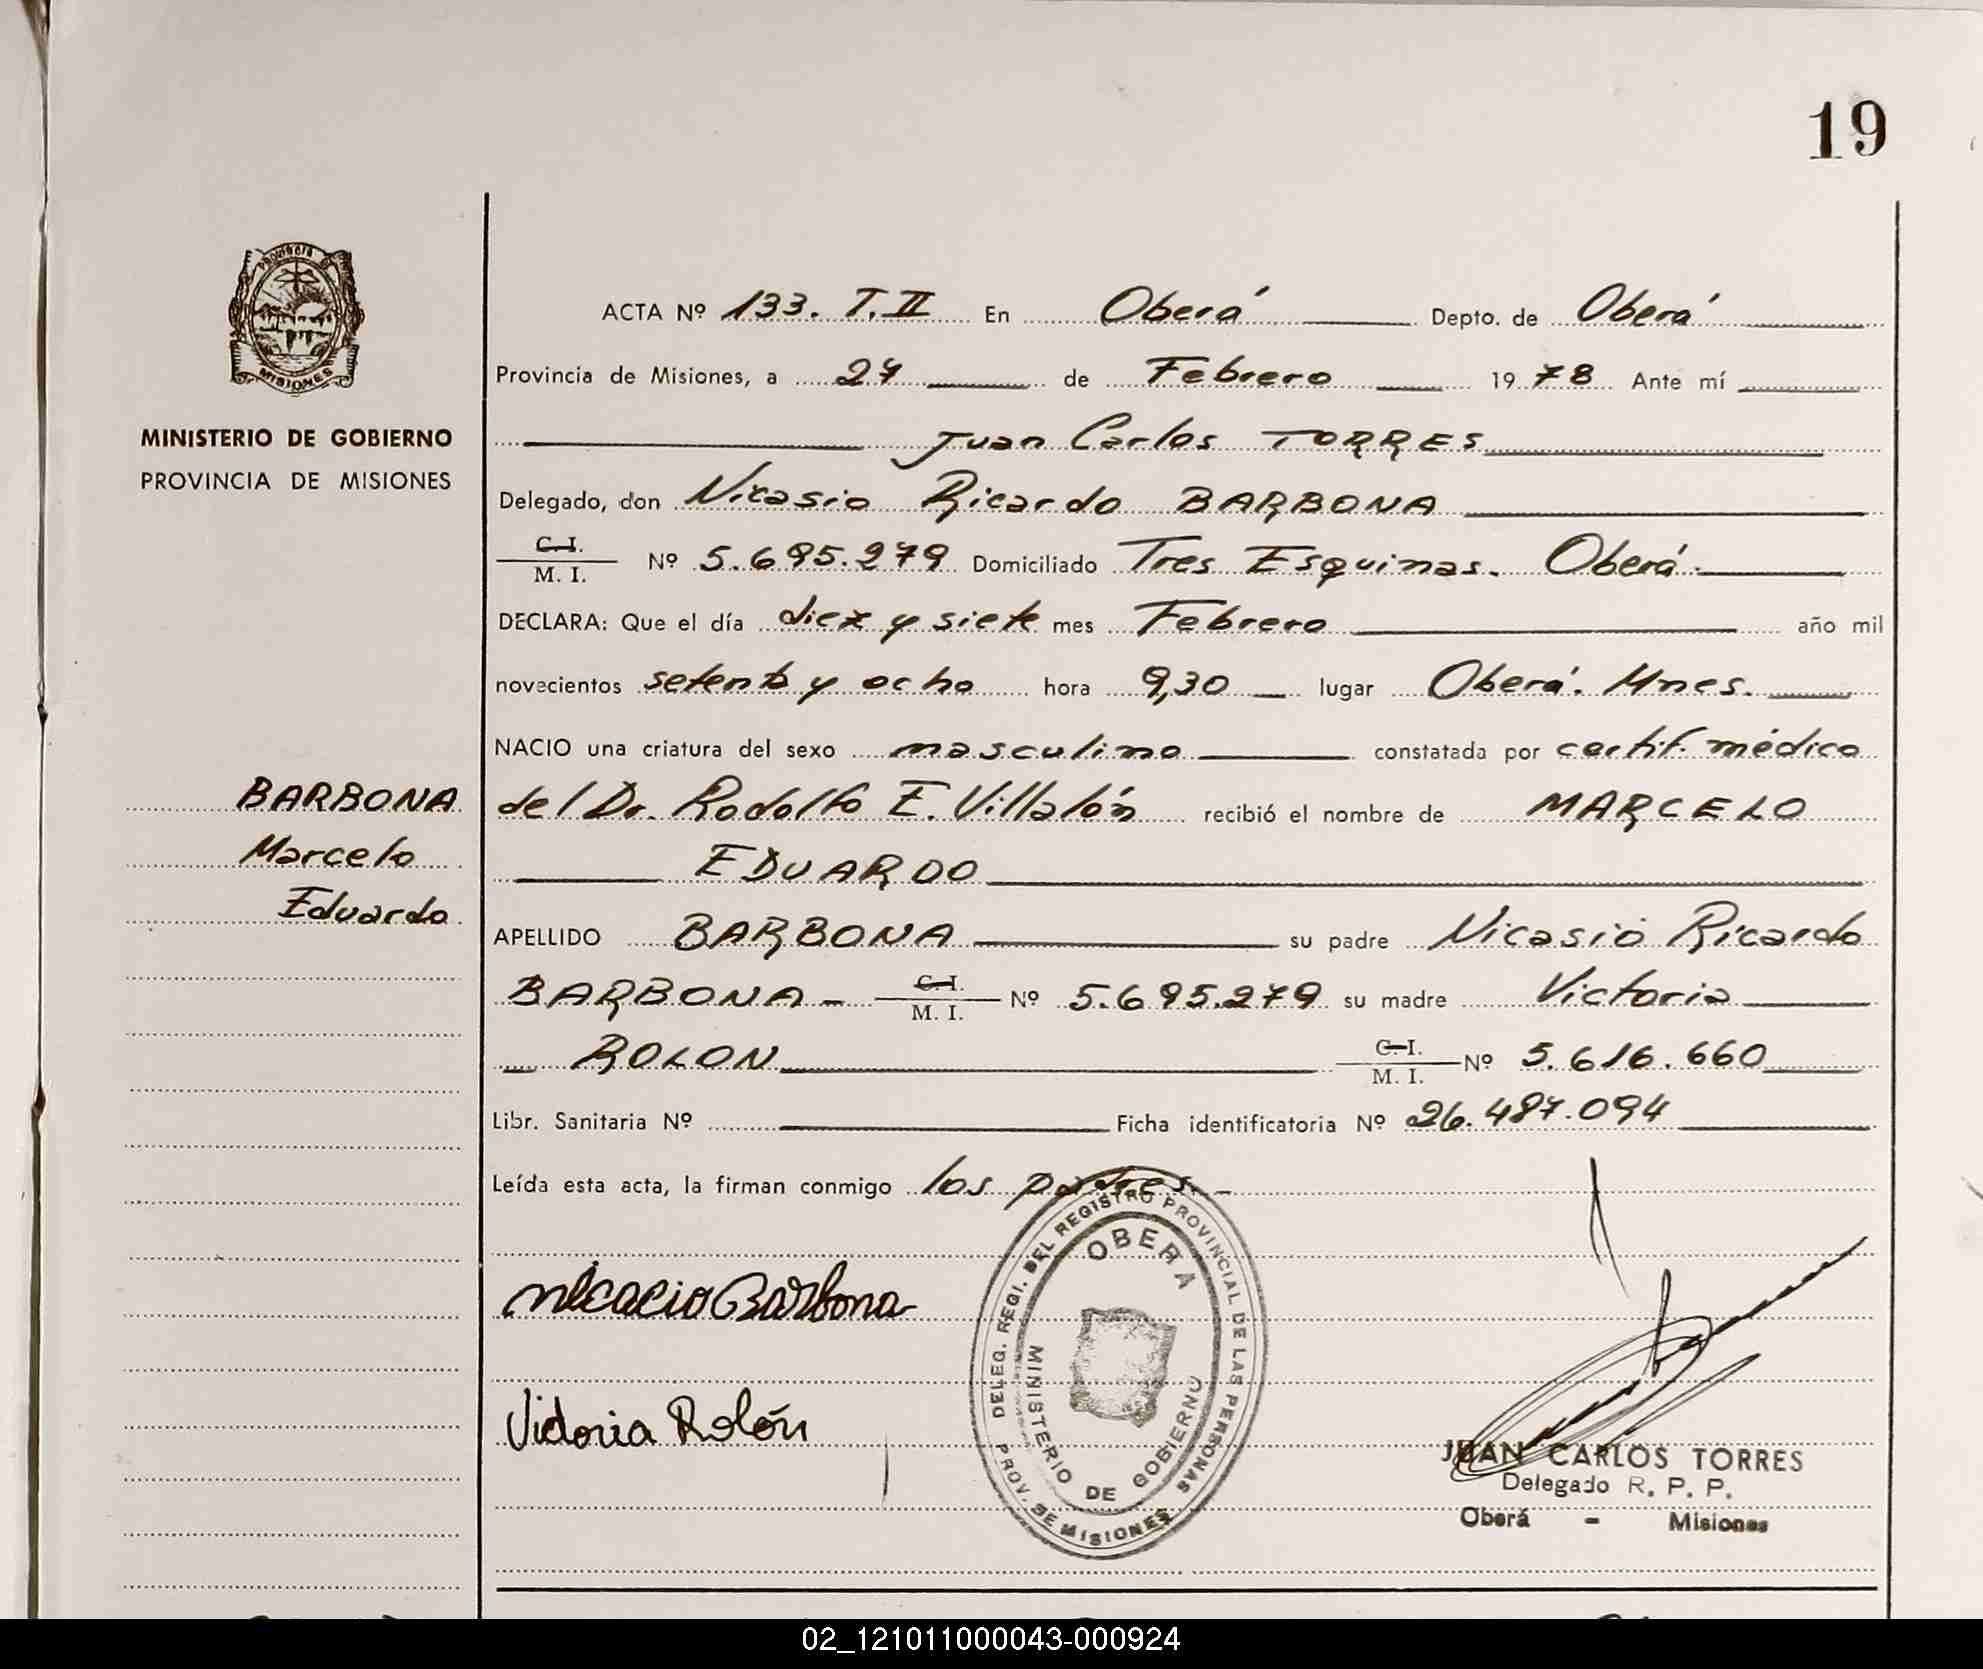 19
Provincia de
MISIONES
MINISTERIO DE GOBIERNO
PROVINCIA DE MISIONES
ACTA Nº 133. T. II En Oberá Depto. de Oberá
Provincia de Misiones, a 27 de Febrero 1978 Ante mí
Juan Carlos TORRES
Delegado, don Nicasio Ricardo BARBONA
C. I.
M. I. Nº 5.695.279 Domiciliado Tres Esquinas. Oberá.
DECLARA: Que el día diez y siete mes Febrero año mil
novecientos setenta y ocho hora 9,30 lugar Oberá. Mnes.
NACIO una criatura del sexo masculino constatada por certif. médico
del Dr. Rodolfo E. Villalón recibió el nombre de MARCELO
EDUARDO
BARBONA
Marcelo
Eduardo
APELLIDO BARBONA su padre Nicasio Ricardo
BARBONA - C. I.
M. I. Nº 5.695.279 su madre Victoria
ROLON C. I.
M. I. Nº 5.616.660
Libr. Sanitaria Nº Ficha identificatoria Nº 26.487.094
Leída esta acta, la firman conmigo los padres. -
nicacio Barbona
Victoria Rolón
DELEG. REGI. DEL REGISTRO PROVINCIAL DE LAS PERSONAS
PROV. DE MISIONES
OBERA
MINISTERIO DE GOBIERNO
JUAN CARLOS TORRES
Delegado R. P. P.
Oberá - Misiones
02_121011000043-000924